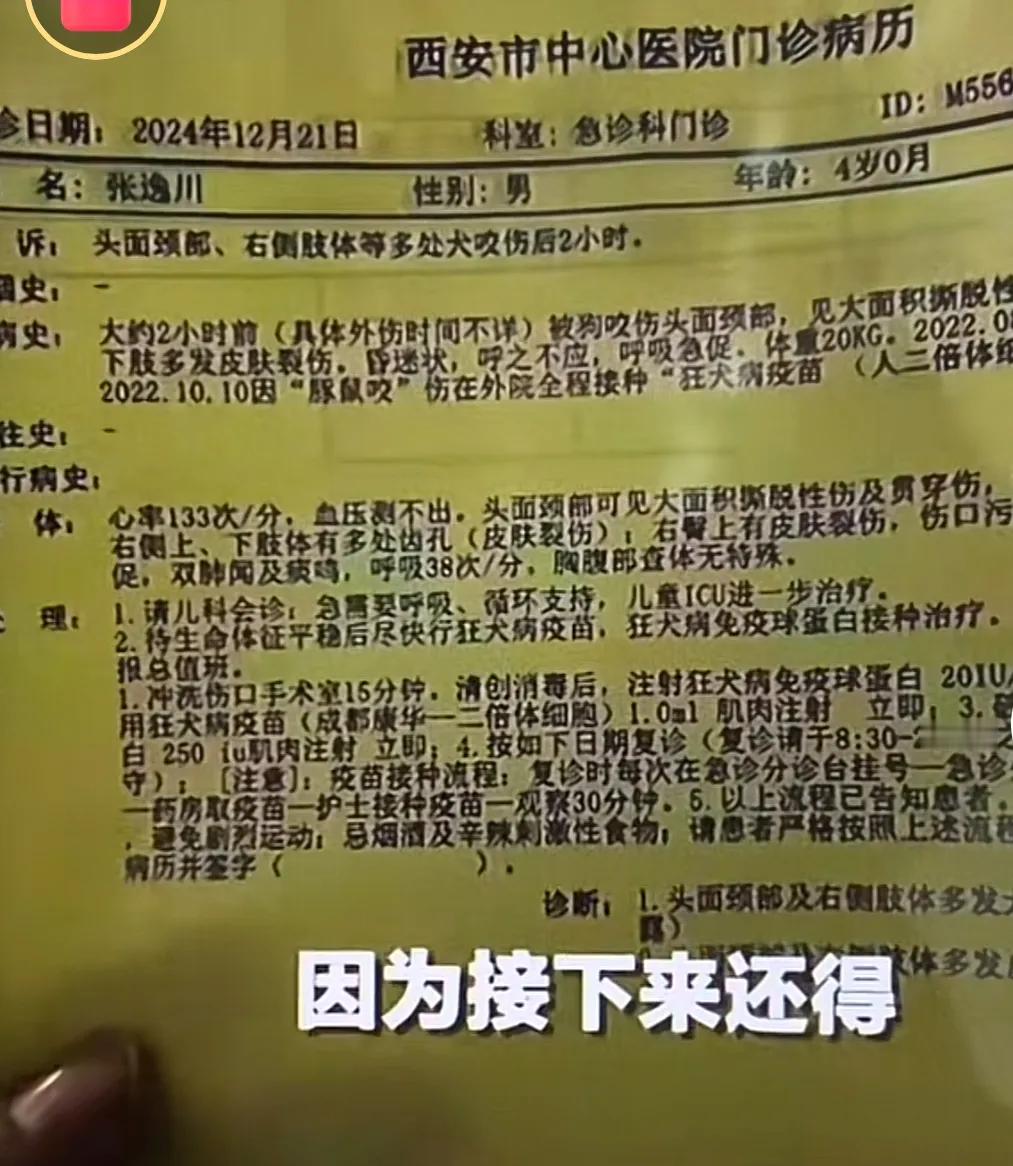 西安市中心医院门诊病历
ID: M556
诊日期: 2024年12月21日 科室: 急诊科门诊
名: 张逸川 性别: 男 年龄: 4岁0月
诉: 头面颈部、右侧肢体等多处犬咬伤后2小时。
史: -
病史: 大约2小时前（具体外伤时间不详）被狗咬伤头面颈部，见大面积撕脱性
下肢多发皮肤裂伤。昏迷状，呼之不应，呼吸急促。体重20KG。2022.08
2022.10.10因“豚鼠咬”伤在外院全程接种“狂犬病疫苗 （人二倍体细
往史: -
行病史:
体: 心率133次/分，血压测不出。头面颈部可见大面积撕脱性伤及贯穿伤，
右侧上、下肢体有多处齿孔（皮肤裂伤）；右臀上有皮肤裂伤，伤口污
促，双肺闻及痰鸣，呼吸38次/分，胸腹部查体无特殊。
理: 1.请儿科会诊：急需要呼吸、循环支持，儿童ICU进一步治疗。
2.待生命体征平稳后尽快行狂犬病疫苗，狂犬病免疫球蛋白接种治疗。
报总值班。
1.冲洗伤口手术室15分钟。清创消毒后，注射狂犬病免疫球蛋白 20IU/
用狂犬病疫苗（成都康华—二倍体细胞）1.0ml 肌肉注射 立即；3.
白 250 iu肌肉注射 立即；4.按如下日期复诊（复诊请于8:30-2
守）；[注意]：疫苗接种流程：复诊时每次在急诊分诊台挂号—急诊
—药房取疫苗—护士接种疫苗—观察30分钟。5.以上流程已告知患者。
，避免剧烈运动；忌烟酒及辛辣刺激性食物；请患者严格按照上述流程
病历并签字（ ）。
诊断: 1.头面颈部及右侧肢体多发
露）
肢体多发
因为接下来还得